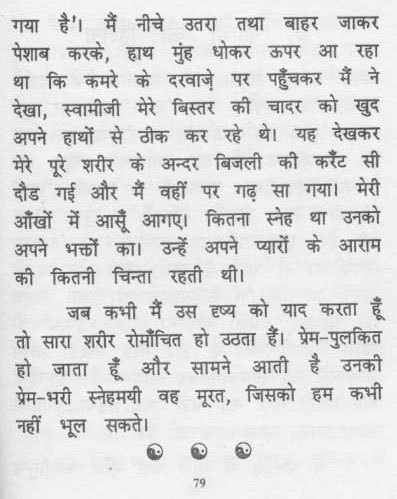 गया है'। मैं नीचे उतरा तथा बाहर जाकर
पेशाब करके, हाथ मुंह धोकर ऊपर आ रहा
था कि कमरे के दरवाज़े पर पहुँचकर मैं ने
देखा, स्वामीजी मेरे बिस्तर की चादर को खुद
अपने हाथों से ठीक कर रहे थे। यह देखकर
मेरे पूरे शरीर के अन्दर बिजली की करैंट सी
दौड गई और मैं वहीं पर गढ़ सा गया। मेरी
आँखों में आसूँ आगए। कितना स्नेह था उनको
अपने भक्तों का। उन्हें अपने प्यारों के आराम
की कितनी चिन्ता रहती थी।
जब कभी मैं उस दृष्य को याद करता हूँ
तो सारा शरीर रोमाँचित हो उठता हैं। प्रेम-पुलकित
हो जाता हूँ और सामने आती है उनकी
प्रेम-भरी स्नेहमयी वह मूरत, जिसको हम कभी
नहीं भूल सकते।
79